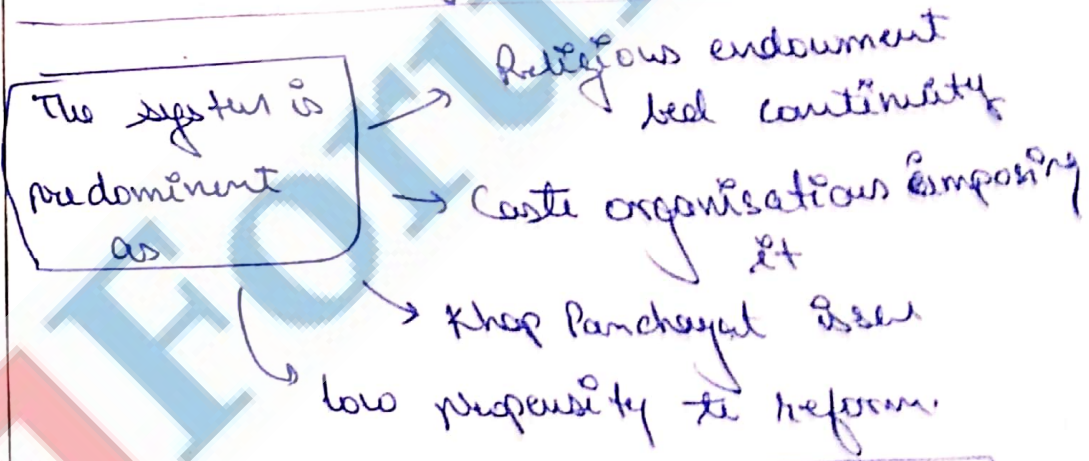 The system is
predominent
as
→ Religious endowment
led continuity
→ Caste organisations imposing
it
→ Khap Panchayat issues
→ low propensity to reform.
Forum